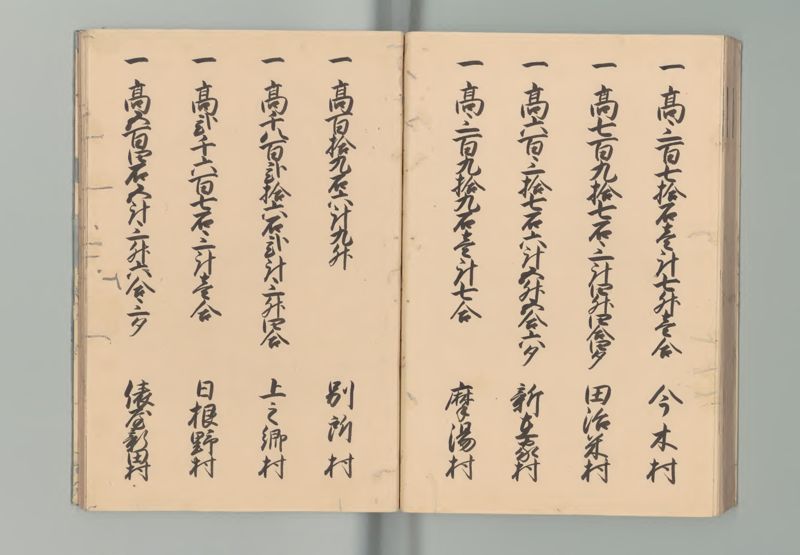 一高三百七拾石壱斗七升壱合 今木村
一高七百九拾七石三斗四升四合四夕 田治米村
一高六百三拾七石六斗五升五合六夕 新在家村
一高三百九拾九石壱斗七合 摩湯村
一高百拾九石六斗九升 別所村
一高千八百弐拾六石弐斗三升四合 上之郷村
一高弐千六百七石三斗壱合 日根野村
一高五百四石五斗三升六合三夕 俵屋新田村